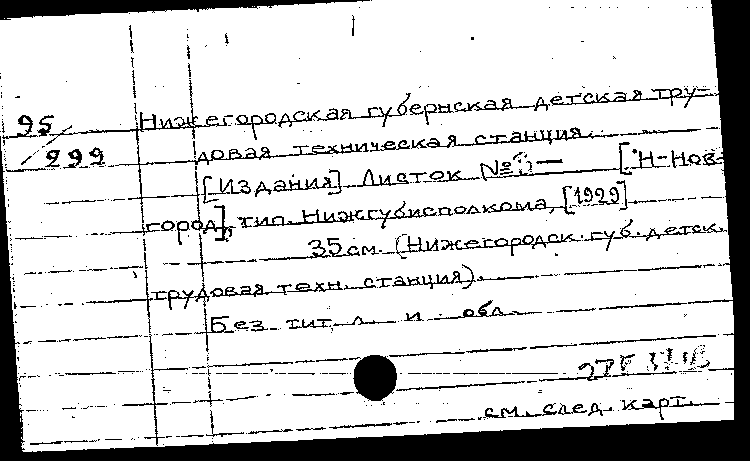 95/999
Нижегородская губернская детская тру-
довая техническая станция.
[Издания]. Листок № 1— [Н-Нов-
город], тип. Нижгубисполкома, [1929].
35 см. (Нижегородск. губ. детск.
трудовая техн. станция).
Без тит. л. и обл.
см. след. карт.